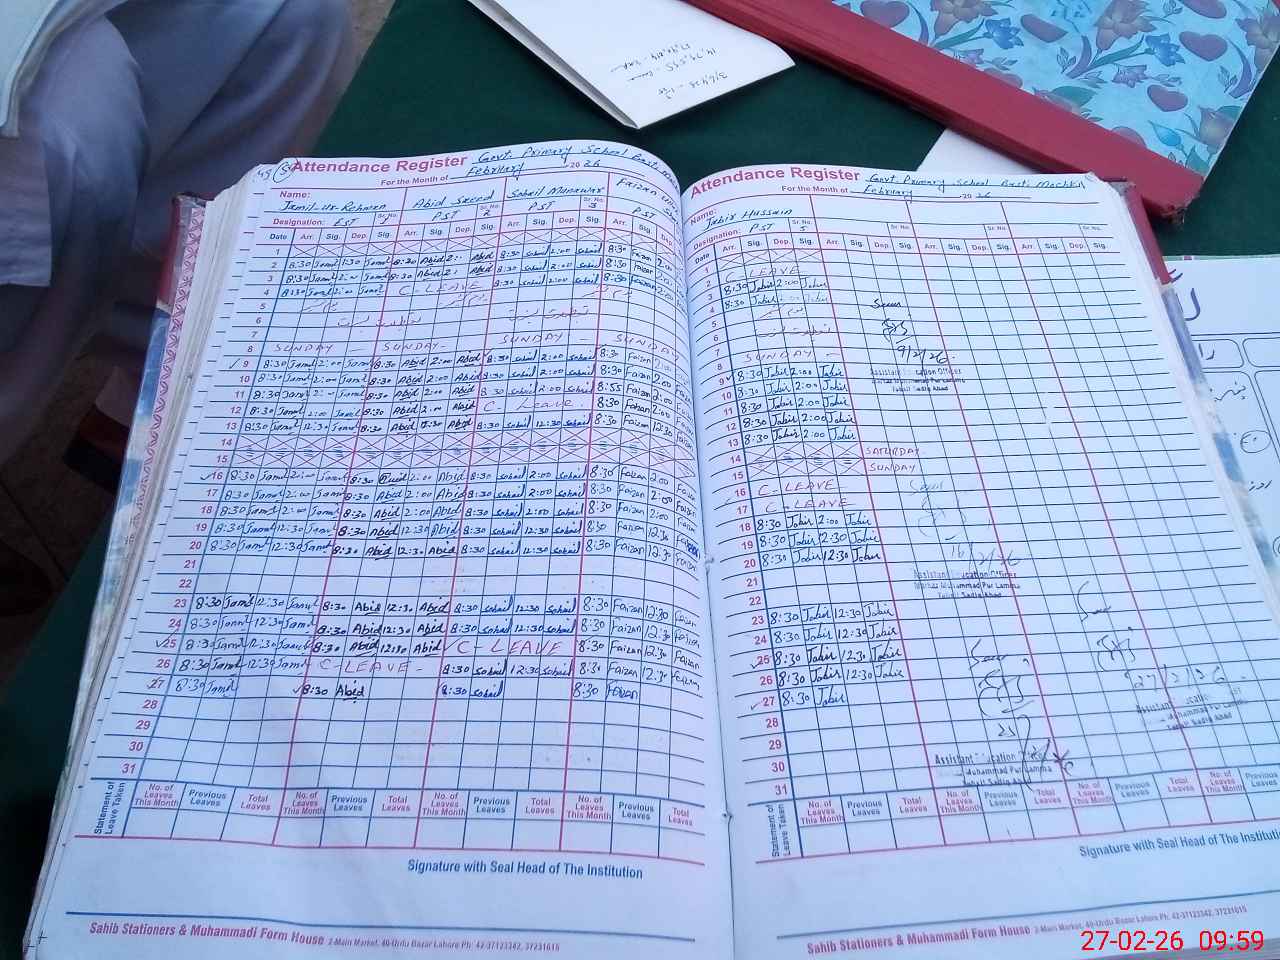 Attendance Register Govt. Primary School Basti
For the Month of February 2026
Name: Jamil-Ur-Rehman Abid Saeed Sohail Manawar Faizan
Designation: EST Sr. No. 1 PST Sr. No. 2 PST Sr. No. 3 PST
Date Arr. Sig. Dep. Sig. Arr. Sig. Dep. Sig. Arr. Sig. Dep. Sig. Arr. Sig. Dep.
1
2 8:30 Jamil 1:30 Jamil 8:30 Abid 2: Abid 8:30 Sohail 2:00 Sohail 8:30 Faizan 2:00
3 8:30 Jamil 2:00 Jamil 8:30 Abid 2: Abid 8:30 Sohail 2:00 Sohail 8:30 Faizan 2:00
4 8:30 Jamil 2:00 Jamil C-LEAVE 8:30 Sohail 2:00 Sohail 8:30 Faizan 2:00
5
6
7
8 SUNDAY - SUNDAY - SUNDAY - SUNDAY
9 8:30 Jamil 2:00 Jamil 8:30 Abid 2:00 Abid 8:30 Sohail 2:00 Sohail 8:30 Faizan 2:00
10 8:30 Jamil 2:00 Jamil 8:30 Abid 2:00 Abid 8:30 Sohail 2:00 Sohail 8:30 Faizan 2:00
11 8:30 Jamil 2:00 Jamil 8:30 Abid 2:00 Abid 8:30 Sohail 2:00 Sohail 8:55 Faizan 2:00
12 8:30 Jamil 2:00 Jamil 8:30 Abid 2:00 Abid C-Leave 8:30 Faizan 2:00
13 8:30 Jamil 12:30 Jamil 8:30 Abid 12:30 Abid 8:30 Sohail 12:30 Sohail 8:30 Faizan 12:30
14
15
16 8:30 Jamil 2:00 Jamil 8:30 Abid 2:00 Abid 8:30 Sohail 2:00 Sohail 8:30 Faizan 2:00
17 8:30 Jamil 2:00 Jamil 8:30 Abid 2:00 Abid 8:30 Sohail 2:00 Sohail 8:30 Faizan 2:00
18 8:30 Jamil 2:00 Jamil 8:30 Abid 2:00 Abid 8:30 Sohail 2:00 Sohail 8:30 Faizan 2:00
19 8:30 Jamil 12:30 Jamil 8:30 Abid 12:30 Abid 8:30 Sohail 12:30 Sohail 8:30 Faizan 12:30
20 8:30 Jamil 12:30 Jamil 8:30 Abid 12:30 Abid 8:30 Sohail 12:30 Sohail 8:30 Faizan 12:30 Faizan
21
22
23 8:30 Jamil 12:30 Jamil 8:30 Abid 12:30 Abid 8:30 Sohail 12:30 Sohail 8:30 Faizan 12:30 Faizan
24 8:30 Jamil 12:30 Jamil 8:30 Abid 12:30 Abid 8:30 Sohail 12:30 Sohail 8:30 Faizan 12:30 Faizan
25 8:30 Jamil 12:30 Jamil 8:30 Abid 12:30 Abid C-LEAVE 8:30 Faizan 12:30 Faizan
26 8:30 Jamil 12:30 Jamil C-LEAVE - 8:30 Sohail 12:30 Sohail 8:30 Faizan 12:30 Faizan
27 8:30 Jamil 8:30 Abid 8:30 Sohail 8:30 Faizan
28
29
30
31
Statement of Leave Taken No. of Leaves This Month Previous Leaves Total Leaves No. of Leaves This Month Previous Leaves Total Leaves No. of Leaves This Month Previous Leaves Total Leaves No. of Leaves This Month Previous Leaves Total Leaves
Signature with Seal Head of The Institution
Sahib Stationers & Muhammadi Form House 2-Main Market, 40-Urdu Bazar Lahore Ph: 42-37123342, 37231615
Attendance Register Govt. Primary School Basti Machhi
For the Month of February 2026
Name: Jabir Hussain
Designation: PST Sr. No. 5 Sr. No. Sr. No. Sr. No.
Date Arr. Sig. Dep. Sig. Arr. Sig. Dep. Sig. Arr. Sig. Dep. Sig. Arr. Sig. Dep. Sig.
1
2 C-LEAVE
3 8:30 Jabir 2:00 Jabir
4 8:30 Jabir 2:00 Jabir
5
6
7
8 SUNDAY -
9 8:30 Jabir 2:00 Jabir
10 8:30 Jabir 2:00 Jabir
11 8:30 Jabir 2:00 Jabir
12 8:30 Jabir 2:00 Jabir
13 8:30 Jabir 2:00 Jabir
14 SATURDAY
15 SUNDAY
16 C-LEAVE
17 C-LEAVE
18 8:30 Jabir 2:00 Jabir
19 8:30 Jabir 12:30 Jabir
20 8:30 Jabir 12:30 Jabir
21
22
23 8:30 Jabir 12:30 Jabir
24 8:30 Jabir 12:30 Jabir
25 8:30 Jabir 12:30 Jabir
26 8:30 Jabir 12:30 Jabir
27 8:30 Jabir
28
29
30
31
9/2/26
Assistant Education Officer
Markaz Muhammad Pur Lamma
Tehsil Sadiq Abad
16/2/26
Assistant Education Officer
Markaz Muhammad Pur Lamma
Tehsil Sadiq Abad
Assistant Education Officer
Muhammad Pur Lamma
Tehsil Sadiq Abad
27/2/26
Assistant Education
Muhammad Pur Lamma
Tehsil Sadiq Abad
Statement of Leave Taken No. of Leaves This Month Previous Leaves Total Leaves No. of Leaves This Month Previous Leaves Total Leaves No. of Leaves This Month Previous Leaves Total Leaves No. of Leaves This Month Previous Leaves
Signature with Seal Head of The Institution
Sahib Stationers & Muhammadi Form House 2-Main Market, 40-Urdu Bazar Lahore Ph: 42-37123342, 37231615
27-02-26 09:59